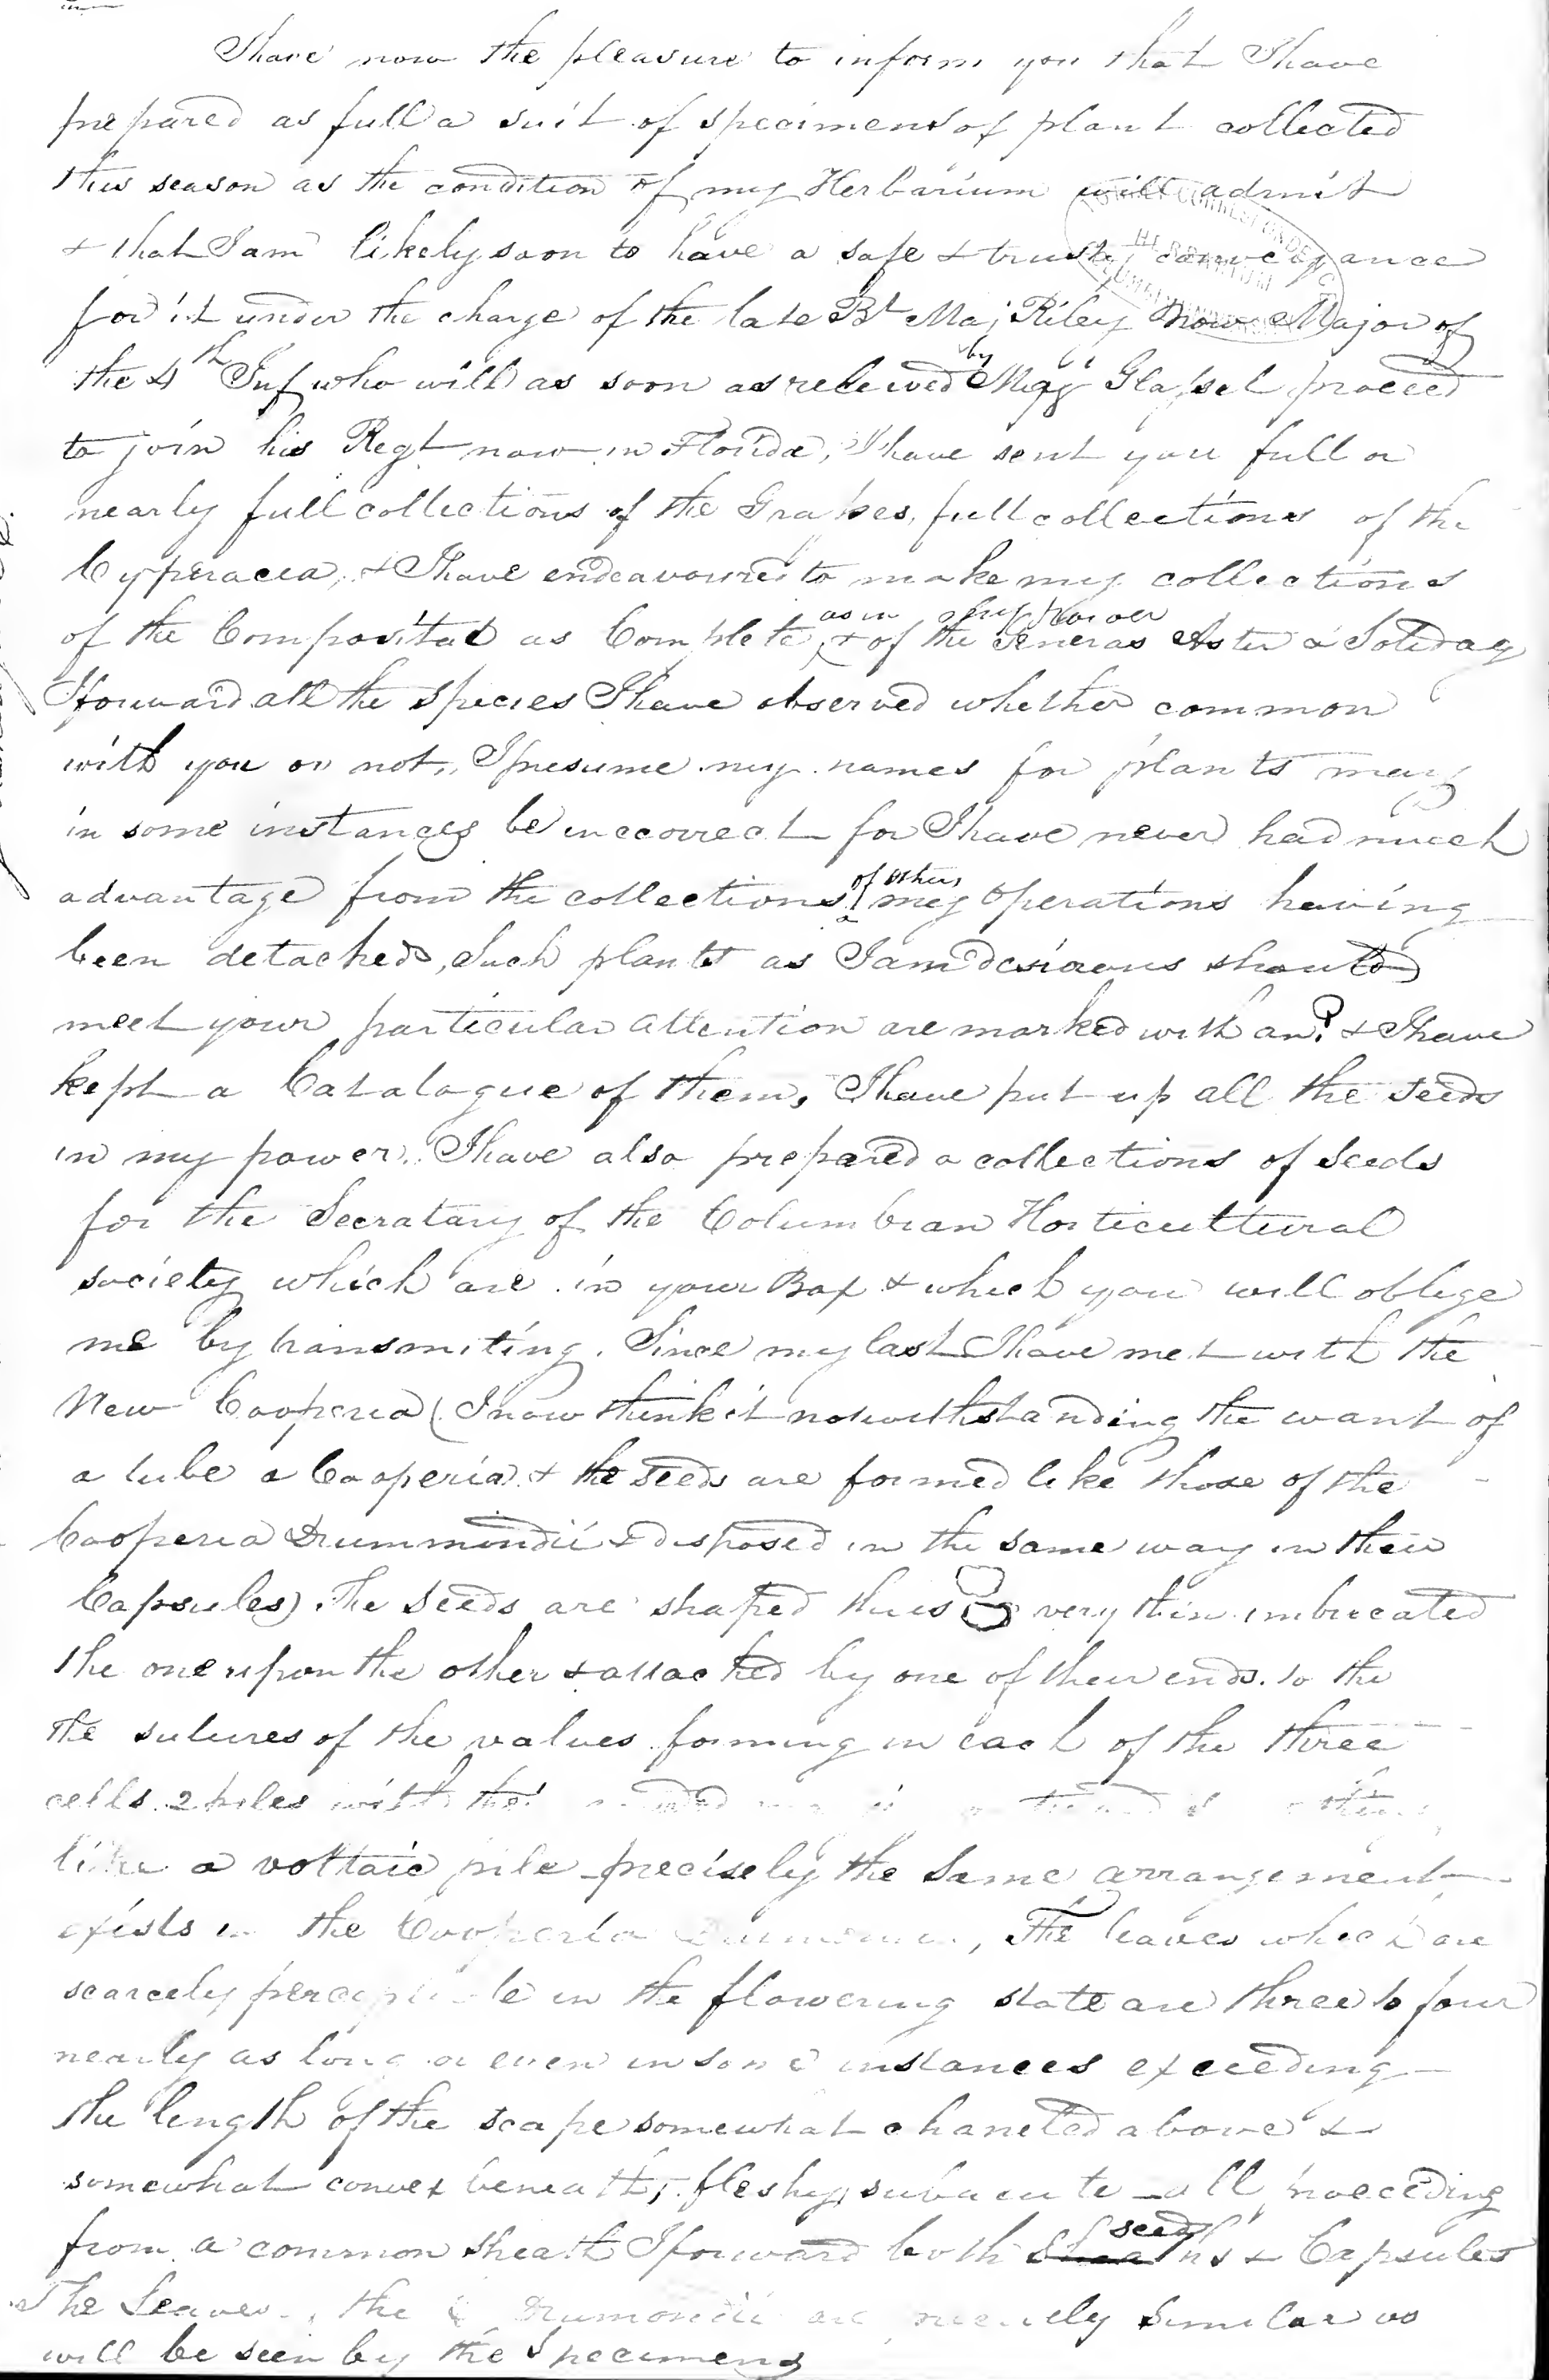 I have now the pleasure to inform you that I have
prepared as full a suit of specimens of plant collected
this season as the condition of my Herbarium will admit
& that I am likely soon to have a safe & trusty conveyance
for it under the charge of the late Bt Maj Riley now Major of
the 4th Inf who will as soon as relieved by Maj Glassel proceed
to join his Regt now in Florida, I have sent you full or
nearly full collections of the Grasses, full collections of the
Cyperacea, & I have endeavoured to make my collections
of the Compositae as Complete as in my power & of the Generas Aster & Solidago
I forward all the species I have observed whether common
with you or not, I presume my names for plants may
in some instances be inccorrect for I have never had much
advantage from the collections of others my operations having
been detached, Such plants as I am desirous should
meet your particular attention are marked with an ? & I have
kept a Catalogue of them, I have put up all the seeds
in my power. I have also prepared a collections of seeds
for the Secratary of the Columbian Horticultural
society which are in your Box & which you will oblige
me by transmiting. Since my last I have met with the
New Cooperia (I now think it notwithstanding the want of
a tube a Cooperia & the seeds are formed like those of the
Cooperia Drummondii & disposed in the same way in their
Capsules). The seeds are shaped thus very thin imbricated
the one upon the other & attached by one of their ends. to the
the sutures of the valves forming in each of the three
cells 2 piles with the
like a voltaic pile precisely the same arrangement
exists in the Cooperia, The leaves which are
scarcely perceptible in the flowering state are three to four
nearly as long or even in some instances exceeding
the length of the scape somewhat chaneled above &
somewhat convex beneath, fleshy, subacute all proceeding
from a common sheath I forward both seeds & Capsules
The Leaves the Drumondii are nearly similar as
will be seen by the Specimens